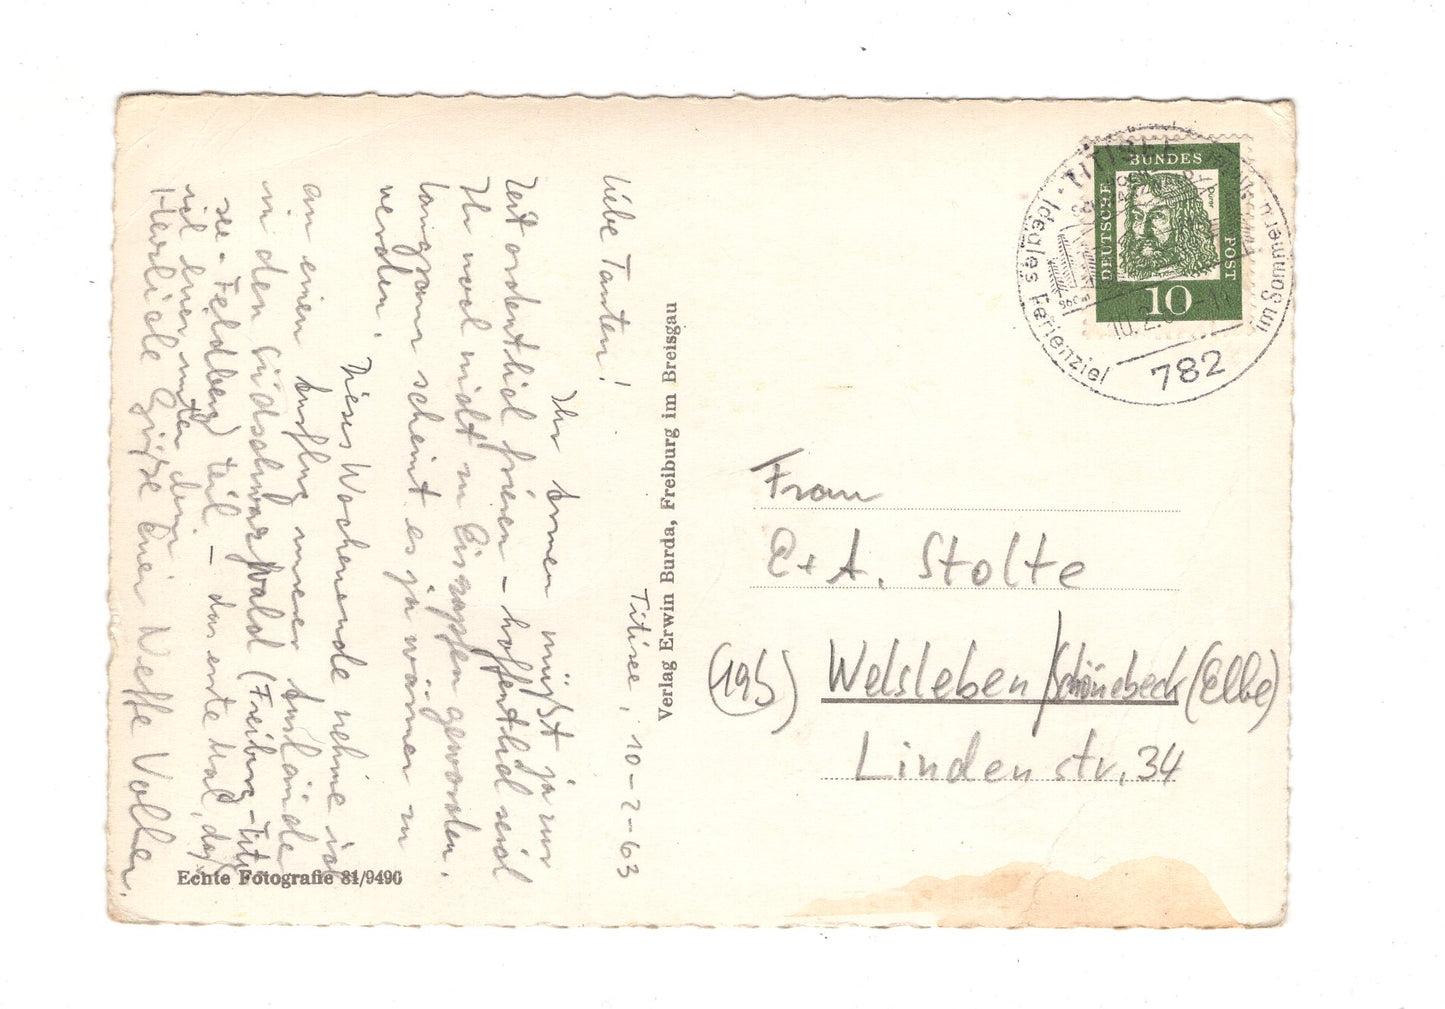 Titisee, 10-2-63
Liebe Tanten!
Ihr Armen müßt ja zur
Zeit ordentlich frieren – hoffentlich seid
Ihr noch nicht zu Eiszapfen geworden.
Langsam scheint es ja wärmer zu
werden.
Dieses Wochenende nehme ich
an einem Ausflug unserer Ausländer
in den Südschwarzwald (Freiburg – Titi-
see – Feldberg) teil – das erste Mal, daß
ich einer unter den
Herzliche Grüße Euer Neffe Volker.
Echte Fotografie 81/9496
Verlag Erwin Burda, Freiburg im Breisgau
DEUTSCHE
BUNDES
POST
10
TITISEE
Ideales Ferienziel
Im Sommer u.
10.2.
782
Frau
E + A. Stolte
(19b) Welsleben/Schönebeck (Elbe)
Lindenstr. 34